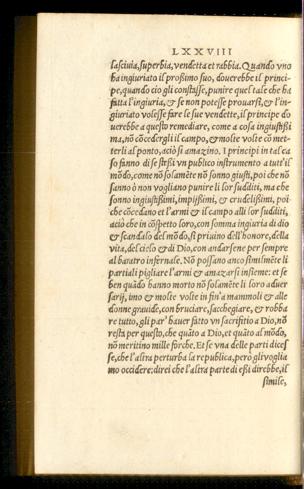 LXXVIII
lasciuia, superbia, vendetta et rabbia. Quando vno
ha ingiuriato il proßimo suo, douerebbe il princi-
pe, quando cio gli constasse, punire quel tale che ha
fatta l'ingiuria, & se non potesse prouarsi, & l'in-
giuriato volesse fare le sue vendette, il principe do
uerebbe a questo remediare, come a cosa ingiustißi
ma, nõ cõcedergli il campo, & molte volte cõ met-
terli al ponto, aciò si amazino. I principi in tal ca
so fanno di se steßi vn publico instrumento a tutt'il
mõdo, come nõ solamẽte nõ sonno giusti, poi che nõ
sanno ò non vogliano punire li lor sudditi, ma che
sonno ingiustißimi, impijßimi, & crudelißimi, poi-
che cõcedano et l'armi & il campo alli lor sudditi,
aciò che in cõspetto loro, con somma ingiuria di dio
& scandalo del mõdo, si priuino dell'honore, della
vita, del cielo & di Dio, con andarsene per sempre
al baratro infernale. Nõ possano anco similmẽte li
partiali pigliare l'armi & amazarsi insieme: et se
ben quãdo hanno morto nõ solamẽte li loro aduer
sarij, imo & molte volte in fin'a mammoli & alle
donne grauide, con bruciare, sacchegiare, & robba
re tutto, gli par' hauer fatto vn sacrifitio a Dio, nõ
resta per questo, che quãto a Dio, et quãto al mõdo,
nõ meritino mille forche. Et se vna delle parti dices
se, che l'altra perturba la republica, però gli voglia
mo occidere: direi che l'altra parte di eßi direbbe, il
simile,